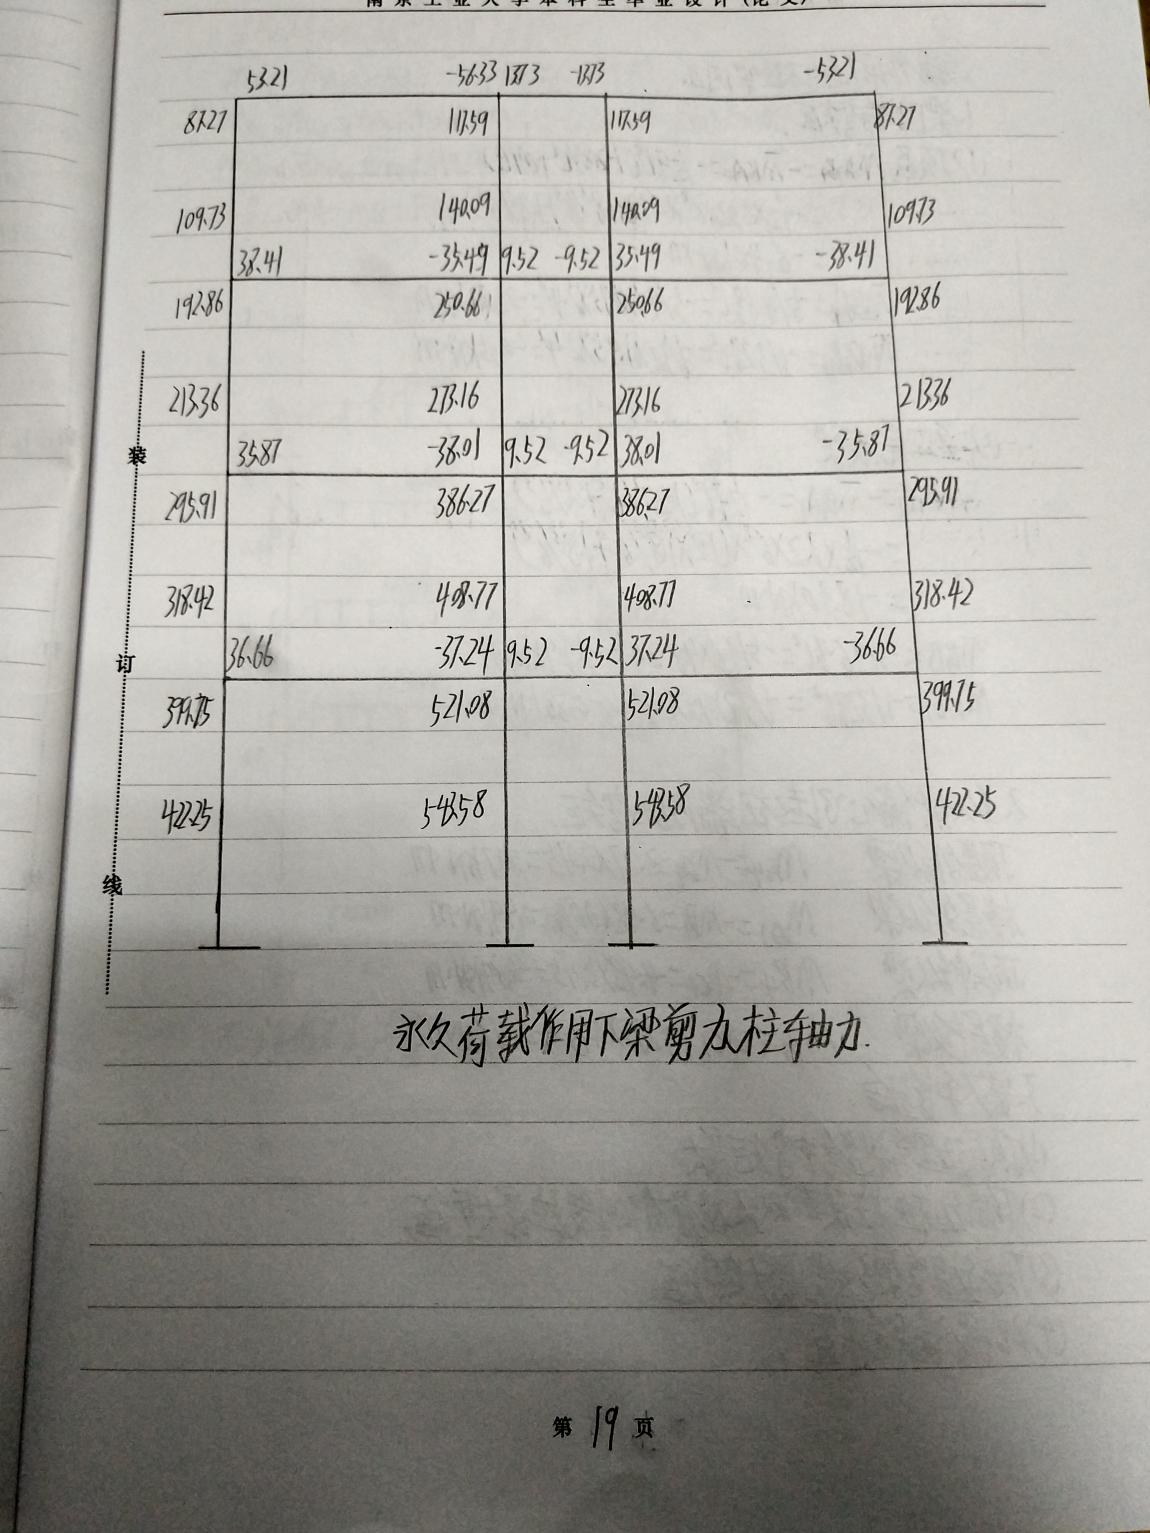 南京工业大学本科生毕业设计(论文)
53.21 -56.33 13.73 -13.73 -53.21
87.27 117.59 117.59 87.27
109.73 140.09 140.09 109.73
38.41 -35.49 9.52 -9.52 35.49 -38.41
192.86 250.66 250.66 192.86
213.36 273.16 273.16 213.36
装
35.87 -38.01 9.52 -9.52 38.01 -35.87
295.91 386.27 386.27 295.91
318.42 408.77 408.77 318.42
订
36.66 -37.24 9.52 -9.52 37.24 -36.66
399.75 521.08 521.08 399.75
422.25 543.58 543.58 422.25
线
永久荷载作用下梁剪力,柱轴力.
第 19 页